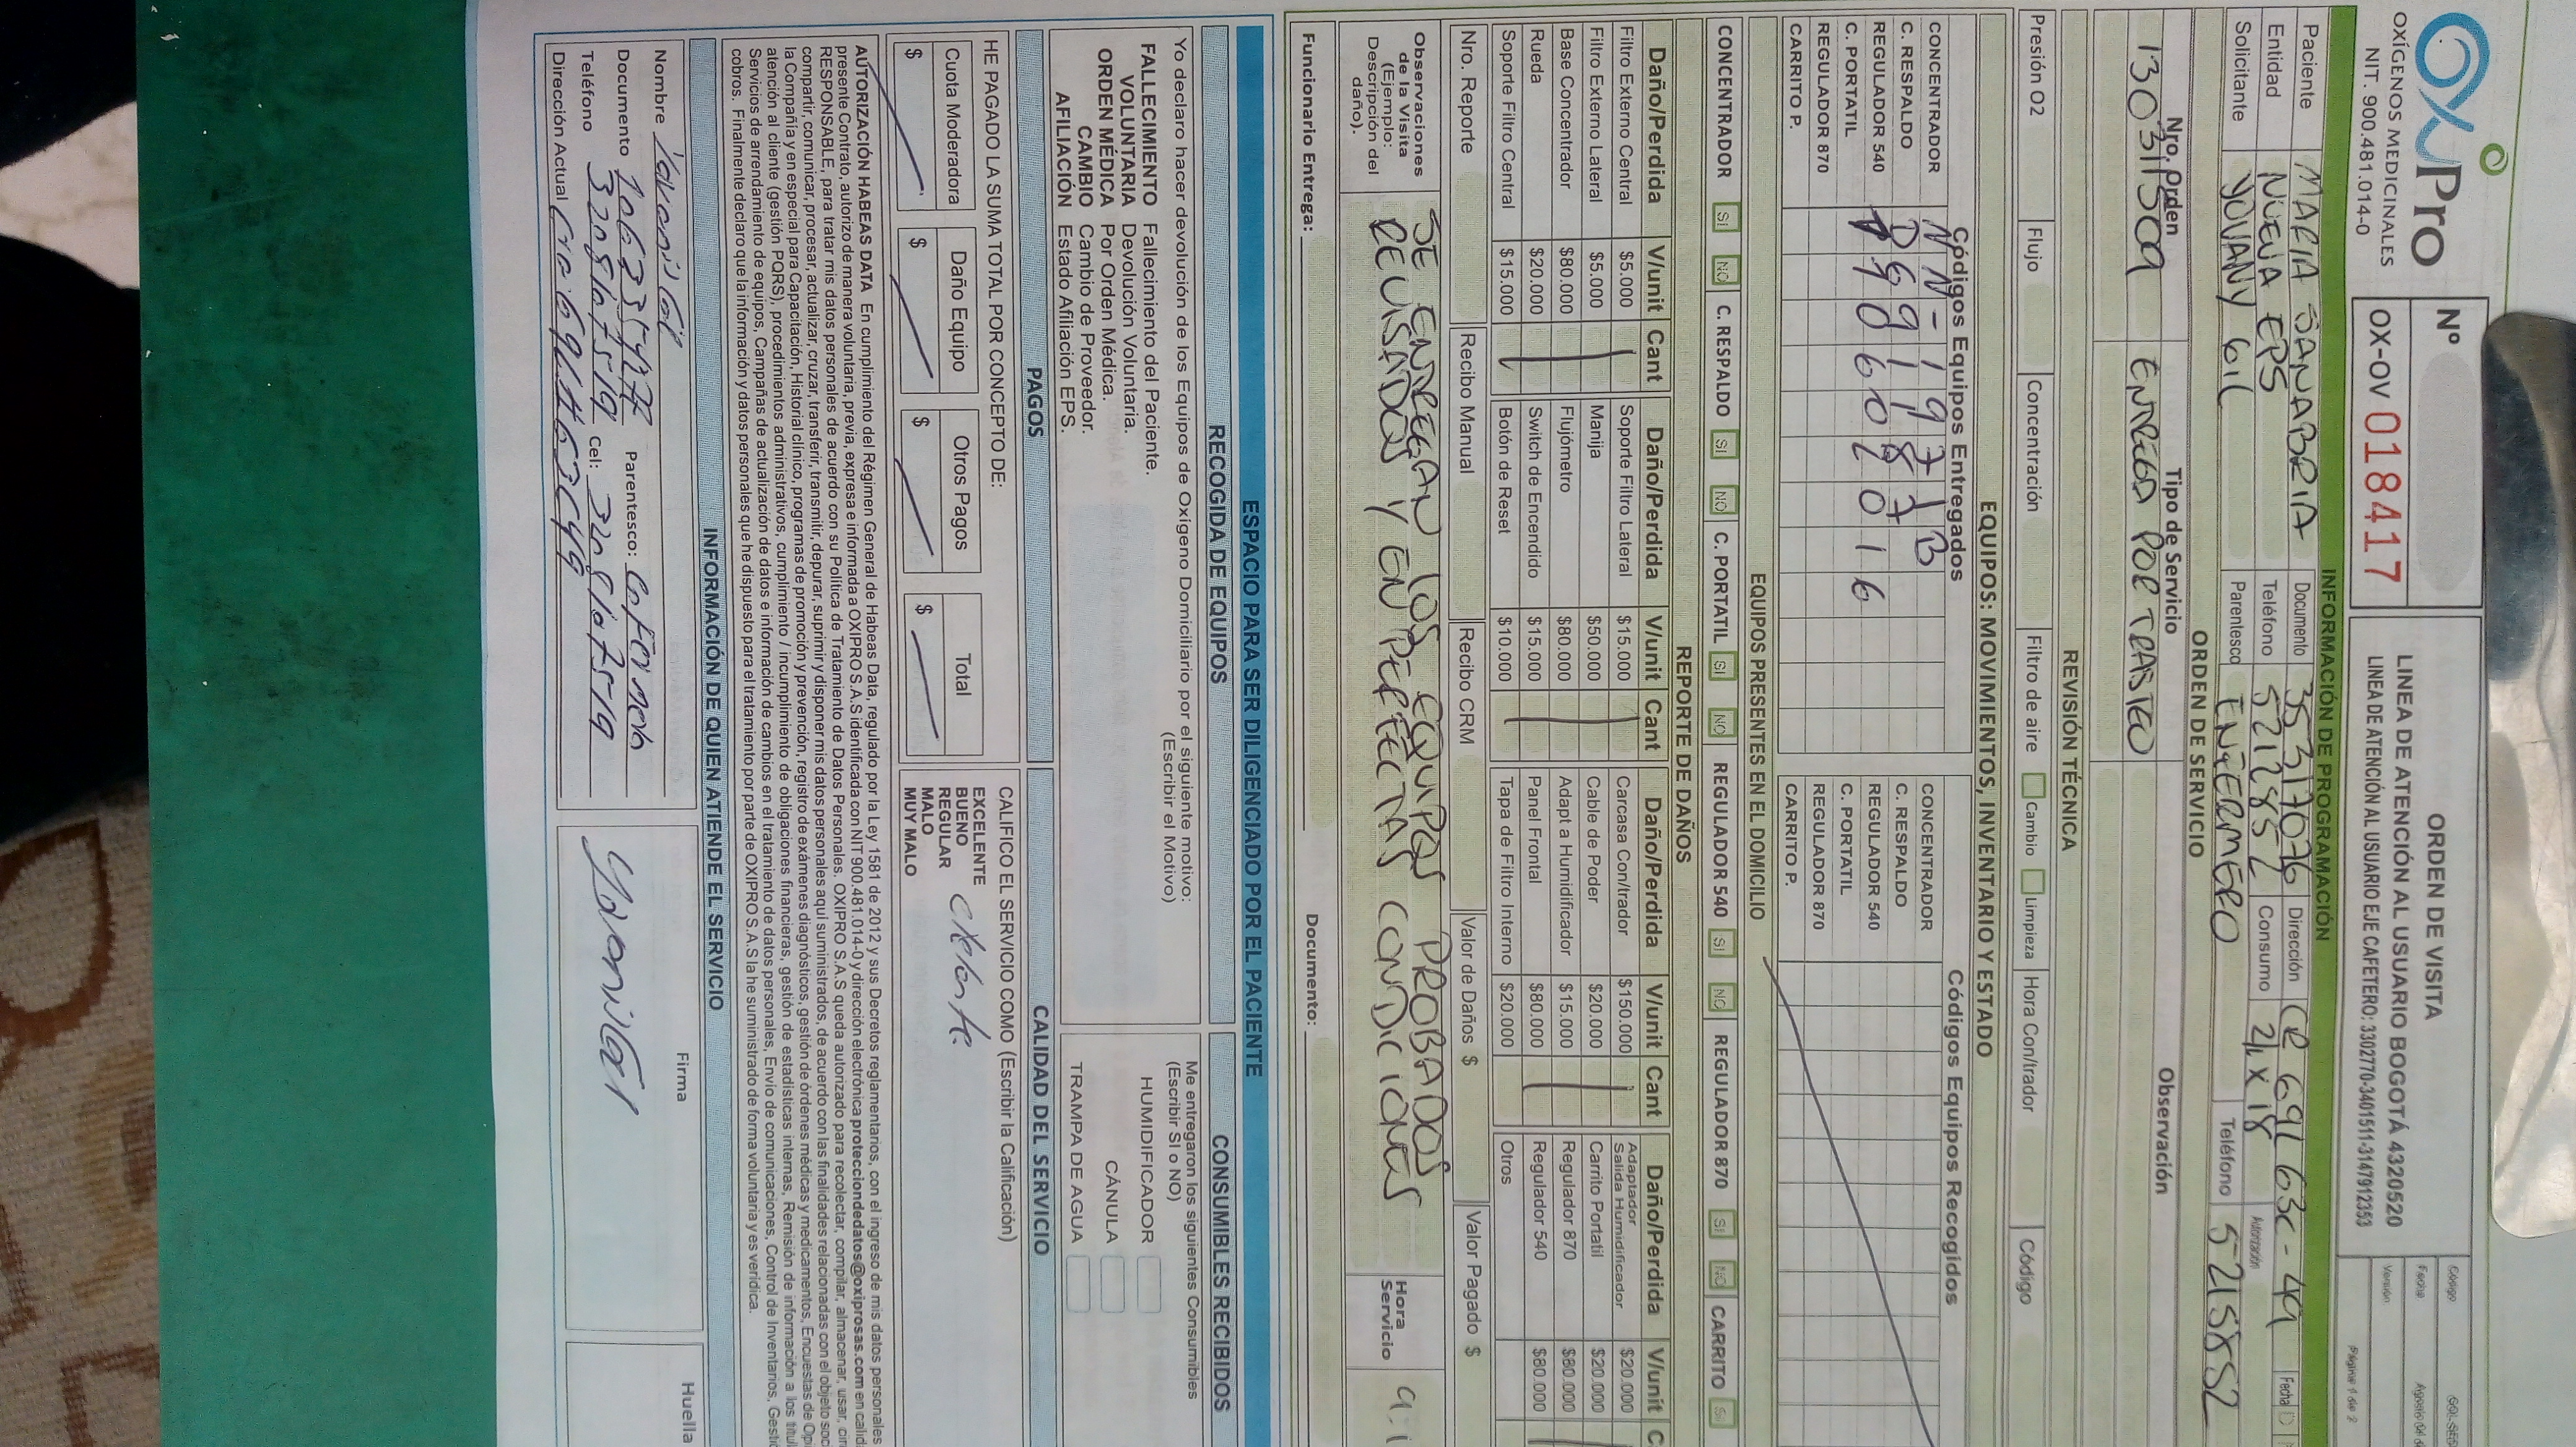 OXiPro
OXÍGENOS MEDICINALES
NIT. 900.481.014-0
Nº
OX-OV 018417
ORDEN DE VISITA
LINEA DE ATENCIÓN AL USUARIO BOGOTÁ 4320520
LINEA DE ATENCIÓN AL USUARIO EJE CAFETERO: 3302770-3401511-3147912353
Código
Fecha
Versión
Página 1 de 2
INFORMACIÓN DE PROGRAMACIÓN
Paciente MARIA SANABRIA Documento 35317076 Dirección CR 69L 63C - 49 Fecha
Entidad NUEVA EPS Teléfono 5215852 Consumo 2L x 18 Autorización
Solicitante YOVANY GIL Parentesco ENFERMERO Teléfono 5215852
ORDEN DE SERVICIO
Nro. Orden Tipo de Servicio Observación
13031509 ENTREGA POR TRASTEO
REVISIÓN TÉCNICA
Presión O2 Flujo Concentración Filtro de aire Cambio Limpieza Hora Con/trador Código
EQUIPOS: MOVIMIENTOS, INVENTARIO Y ESTADO
Códigos Equipos Entregados Códigos Equipos Recogidos
CONCENTRADOR NN-1971B CONCENTRADOR
C. RESPALDO C. RESPALDO
REGULADOR 540 REGULADOR 540
C. PORTATIL C. PORTATIL
REGULADOR 870 REGULADOR 870
CARRITO P. CARRITO P.
EQUIPOS PRESENTES EN EL DOMICILIO
CONCENTRADOR SI NO C. RESPALDO SI NO C. PORTATIL SI NO REGULADOR 540 SI NO REGULADOR 870 SI NO CARRITO SI
REPORTE DE DAÑOS
Daño/Perdida V/unit Cant Daño/Perdida V/unit Cant Daño/Perdida V/unit Cant Daño/Perdida V/unit C
Filtro Externo Central $5.000 Soporte Filtro Lateral $15.000 Carcasa Con/trador $150.000 Adaptador Salida Humidificador $20.000
Filtro Externo Lateral $5.000 Manija $50.000 Cable de Poder $20.000 Carrito Portatil $20.000
Base Concentrador $80.000 Flujómetro $80.000 Adapt a Humidificador $15.000 Regulador 870 $80.000
Rueda $20.000 Switch de Encendido $15.000 Panel Frontal $80.000 Regulador 540 $80.000
Soporte Filtro Central $15.000 Botón de Reset $10.000 Tapa de Filtro Interno $20.000 Otros
Nro. Reporte Recibo Manual Recibo CRM Valor de Daños $ Valor Pagado $
Observaciones de la Visita (Ejemplo: Descripción del daño).
SE ENTREGAN LOS EQUIPOS PROBADOS
REVISADOS Y EN PERFECTAS CONDICIONES
Hora Servicio
Funcionario Entrega: Documento:
ESPACIO PARA SER DILIGENCIADO POR EL PACIENTE
RECOGIDA DE EQUIPOS CONSUMIBLES RECIBIDOS
Yo declaro hacer devolución de los Equipos de Oxigeno Domiciliario por el siguiente motivo:
(Escribir el Motivo)
FALLECIMIENTO Fallecimiento del Paciente.
VOLUNTARIA Devolución Voluntaria.
ORDEN MÉDICA Por Orden Médica.
CAMBIO Cambio de Proveedor.
AFILIACIÓN Estado Afiliación EPS.
Me entregaron los siguientes Consumibles
(Escribir SI o NO)
HUMIDIFICADOR
CÁNULA
TRAMPA DE AGUA
PAGOS CALIDAD DEL SERVICIO
HE PAGADO LA SUMA TOTAL POR CONCEPTO DE:
Cuota Moderadora Daño Equipo Otros Pagos Total
$ $ $ $
CALIFICO EL SERVICIO COMO (Escribir la Calificación)
EXCELENTE
BUENO
REGULAR
MALO
MUY MALO
AUTORIZACIÓN HABEAS DATA En cumplimiento del Régimen General de Habeas Data, regulado por la Ley 1581 de 2012 y sus Decretos reglamentarios, con el ingreso de mis datos personales
presente Contrato, autorizo de manera voluntaria, previa, expresa e informada a OXIPRO S.A.S identificada con NIT 900.481.014-0 y dirección electrónica protecciondedatos@oxiprosas.com en calid
RESPONSABLE, para tratar mis datos personales de acuerdo con su Política de Tratamiento de Datos Personales. OXIPRO S.A.S queda autorizado para recolectar, compilar, almacenar, usar, cir
compartir, comunicar, procesar, actualizar, cruzar, transferir, transmitir, depurar, suprimir y disponer mis datos personales aquí suministrados, de acuerdo con las finalidades relacionadas con el objeto soc
la Compañía y en especial para Capacitación, Historial clínico, programas de promoción y prevención, registro de exámenes diagnósticos, gestión de órdenes médicas y medicamentos, Encuestas de Opi
atención al cliente (gestión PQRS), procedimientos administrativos, cumplimiento / incumplimiento de obligaciones financieras, gestión de estadísticas internas, Remisión de información a los titul
Servicios de arrendamiento de equipos, Campañas de actualización de datos e información de cambios en el tratamiento de datos personales, Envío de comunicaciones, Control de Inventarios, Gesti
cobros. Finalmente declaro que la información y datos personales que he dispuesto para el tratamiento por parte de OXIPRO S.A.S la he suministrado de forma voluntaria y es verídica.
INFORMACIÓN DE QUIEN ATIENDE EL SERVICIO
Nombre Firma Huella
Documento Parentesco:
Teléfono 3208107519 Cel: 3208107519
Dirección Actual Cra 69L # 63C 49